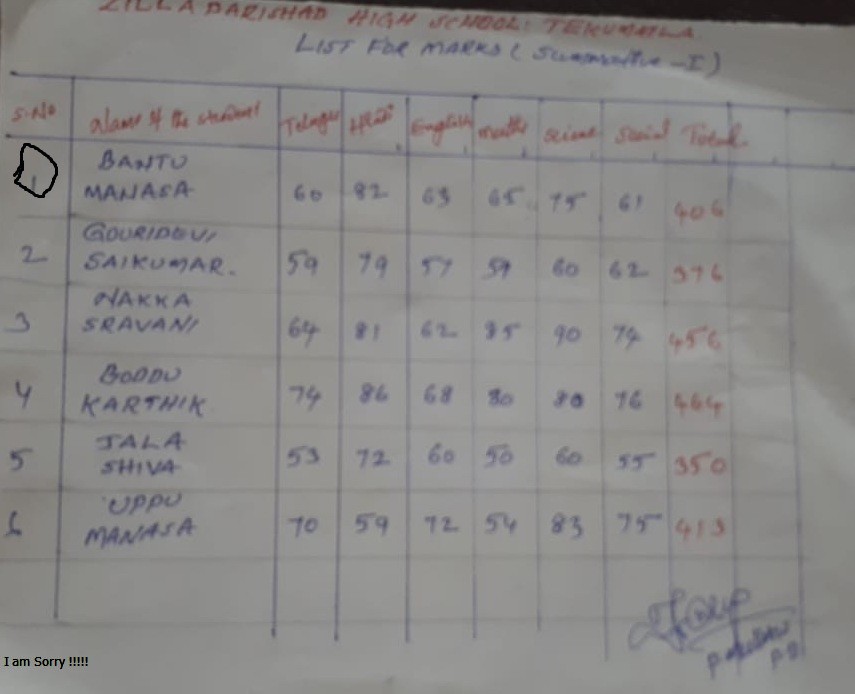 ZILLA PARISHAD HIGH SCHOOL: TEKUMATLA
LIST FOR MARKS (Summative - I)
S.No Name of the student Telugu Hindi English maths science Social Total
1 BANTU MANASA 60 82 63 65 75 61 406
2 GOURIDEVI SAIKUMAR. 59 79 57 59 60 62 376
3 NAKKA SRAVANI 64 81 62 85 90 74 456
4 BODDU KARTHIK 74 86 68 80 80 76 464
5 JALA SHIVA 53 72 60 50 60 55 350
6 UPPU MANASA 70 59 72 54 83 75 413
I am Sorry !!!!!